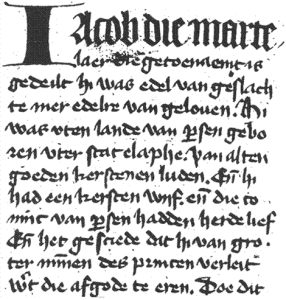 Iacob die marte
laer die getoenaemt is
gedeilt hi was edel van geslach
te mer edelre van geloven. Hi
was uten lande van persen gebo
ren uter stat elaphe. van alten
goeden kerstenen luden. En hi
had een kersten wijf. en die co
ninc van persen hadden herde lief
En het gesciede dit hi van gro
ter minnen des princen verleit
wert die afgode te eren. Doe dit